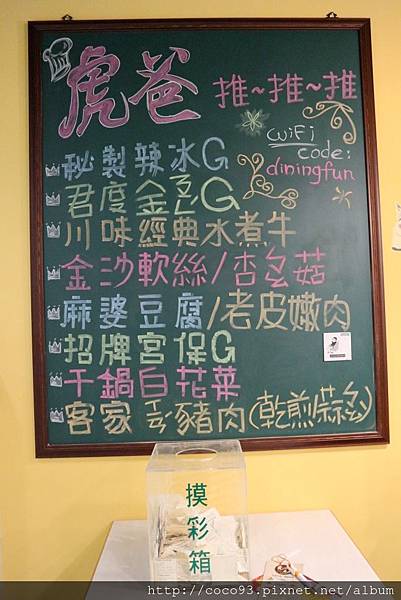 虎爸
推~推~推
wiFi
code:
diningfun
秘製辣冰G
君度金
G
川味經典水煮牛
金沙軟絲/杏
菇
麻婆豆腐/老皮嫩肉
招牌宮保G
干鍋白花菜
客家
豬肉(乾煎蒜
)
摸彩箱
http://coco93.pixnet.net/album